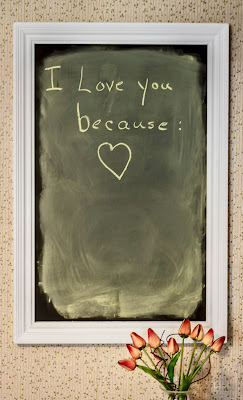 I Love you
because: